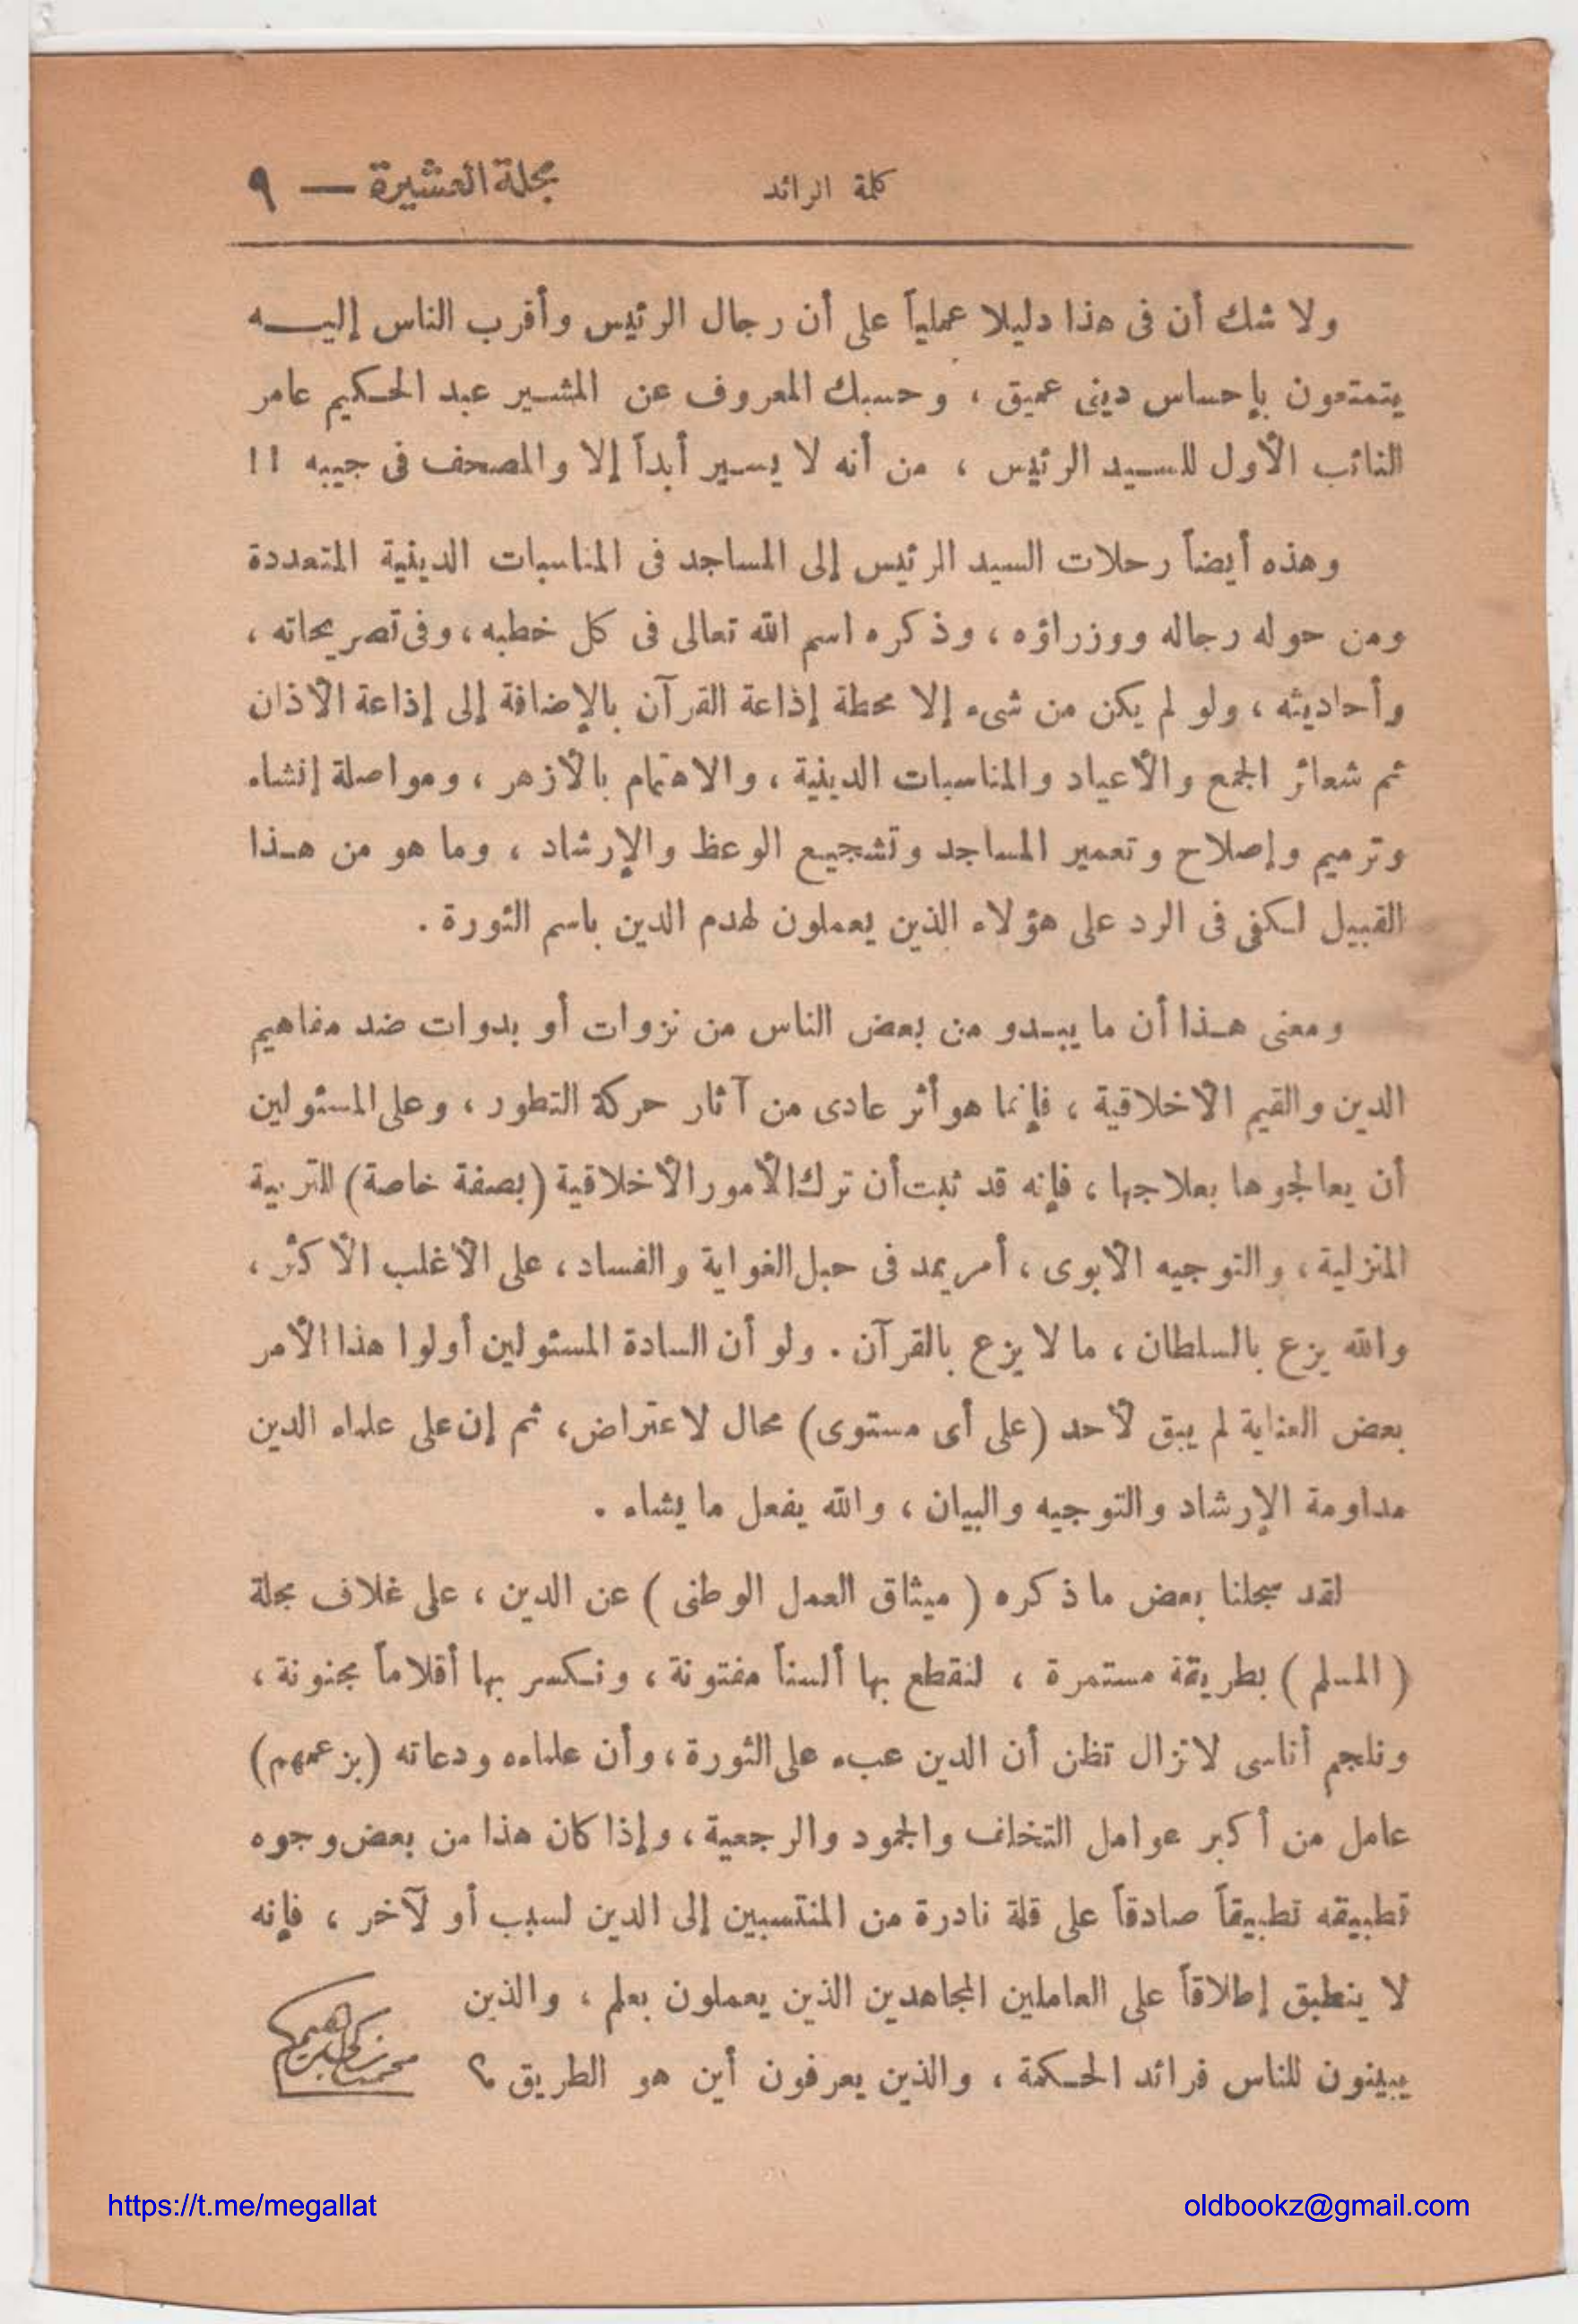 كلمة الرائد
مجلة العشيرة — ٩
ولا شك أن فى هذا دليلا عملياً على أن رجال الرئيس وأقرب الناس إليــه
يتمتعون بإحساس دينى عميق ، وحسبك المعروف عن المشير عبد الحكيم عامر
النائب الأول للسيد الرئيس ، من أنه لا يسير أبداً إلا والمصحف فى جيبه !!
وهذه أيضاً رحلات السيد الرئيس إلى المساجد فى المناسبات الدينية المتعددة
ومن حوله رجاله ووزراؤه ، وذكره اسم الله تعالى فى كل خطبه ، وفى تصريحاته ،
وأحاديثه ، ولو لم يكن من شىء إلا محطة إذاعة القرآن بالإضافة إلى إذاعة الأذان
ثم شعائر الجمع والأعياد والمناسبات الدينية ، والاهتمام بالأزهر ، ومواصلة إنشاء
وترميم وإصلاح وتعمير المساجد وتشجيع الوعظ والإرشاد ، وما هو من هـذا
القبيل لـكفى فى الرد على هؤلاء الذين يعملون لهدم الدين باسم الثورة .
ومعنى هـذا أن ما يبـدو من بعض الناس من نزوات أو بدوات ضد مفاهيم
الدين والقيم الأخلاقية ، فإنما هو أثر عادى من آثار حركة التطور ، وعلى المسئولين
أن يعالجوها بعلاجها ، فإنه قد ثبت أن ترك الأمور الأخلاقية (بصفة خاصة) للتربية
المنزلية ، والتوجيه الأبوى ، أمر يمد فى حبل الغواية والفساد ، على الأغلب الأكثر ،
والله يزع بالسلطان ، ما لا يزع بالقرآن . ولو أن السادة المسئولين أولوا هذا الأمر
بعض العناية لم يبق لأحد (على أى مستوى) محال لاعتراض ، ثم إن على علماء الدين
مداومة الإرشاد والتوجيه والبيان ، والله يفعل ما يشاء .
لقد سجلنا بعض ما ذكره ( ميثاق العمل الوطنى ) عن الدين ، على غلاف مجلة
( المسلم ) بطريقة مستمرة ، لنقطع بها ألسناً مفتونة ، ونـكسر بها أقلاماً مجنونة ،
ونلجم أناسى لاتزال تظن أن الدين عبء على الثورة ، وأن علماءه ودعاته (بزعمهم)
عامل من أكبر عوامل التخلف والجمود والرجعية ، وإذا كان هذا من بعض وجوه
تطبيقه تطبيقاً صادقاً على قلة نادرة من المنتسبين إلى الدين لسبب أو لآخر ، فإنه
لا ينطبق إطلاقاً على العاملين المجاهدين الذين يعملون بعلم ، والذين
يبينون للناس فرائد الحـكمة ، والذين يعرفون أين هو الطريق ؟
محمد زكى إبراهيم
https://t.me/megallat
oldbookz@gmail.com